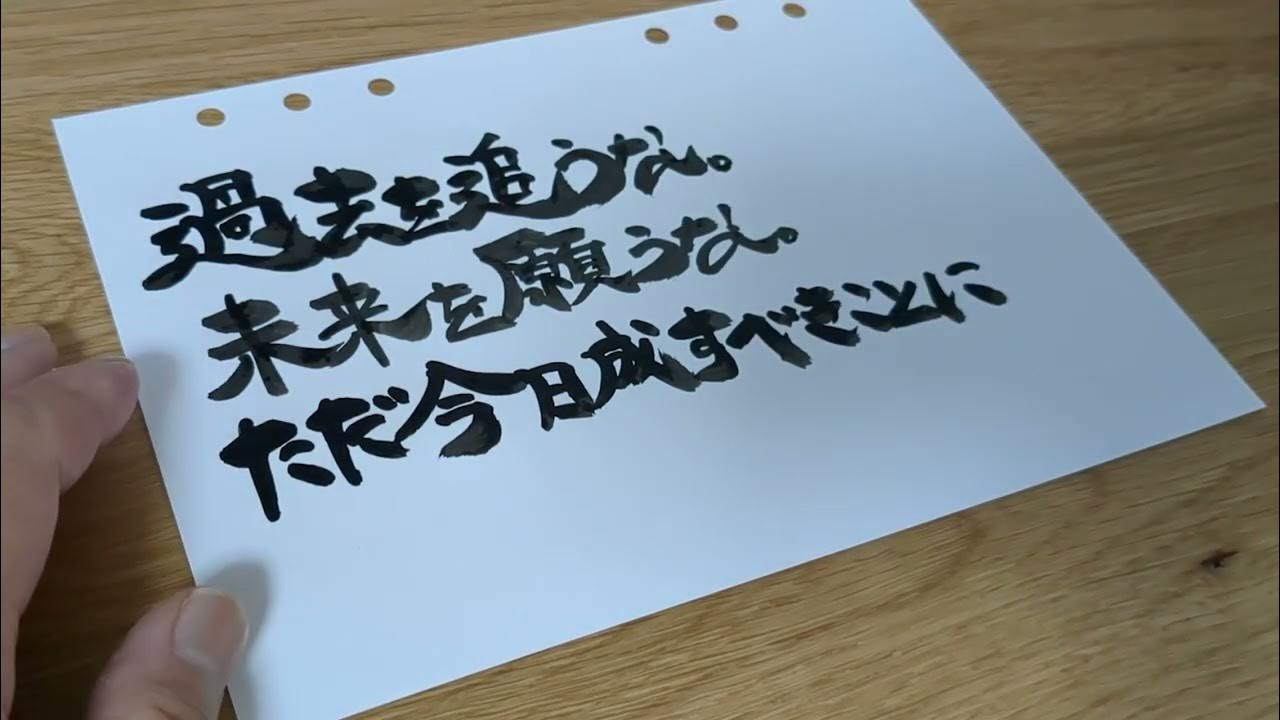 過去を追うな。
未来を願うな。
ただ今日成すべきことに